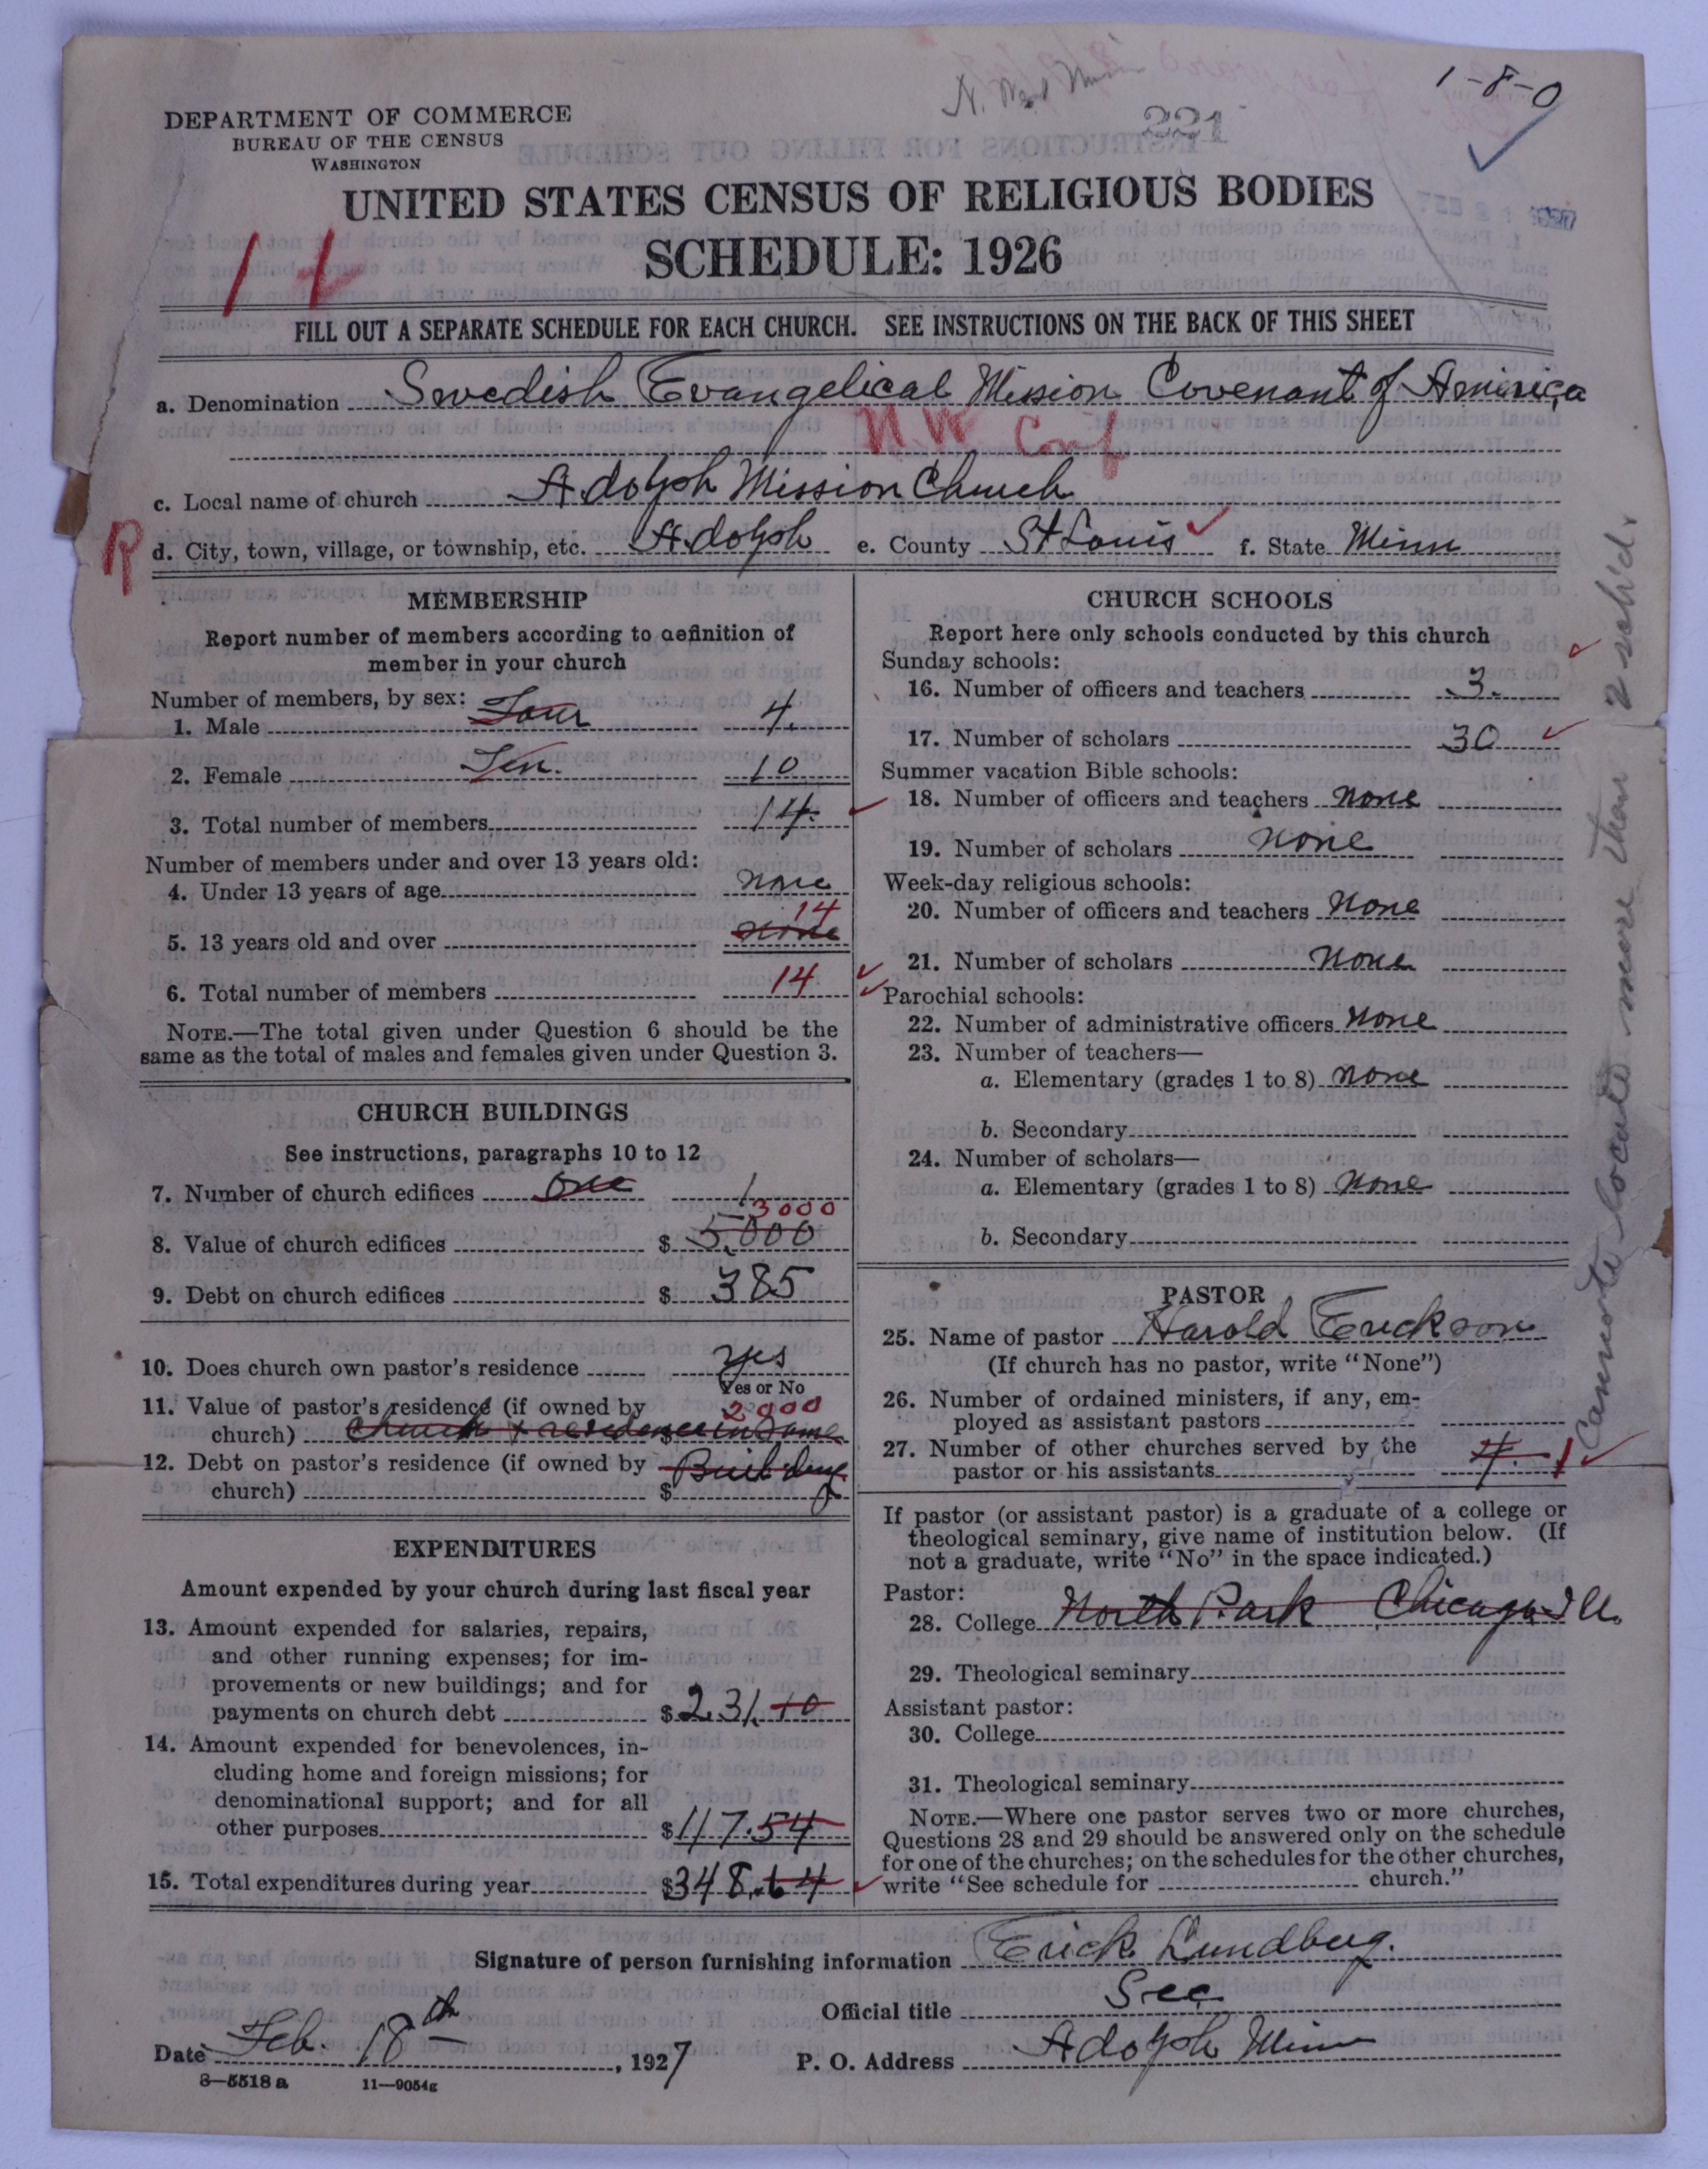 1-8-0
221
DEPARTMENT OF COMMERCE
BUREAU OF THE CENSUS
WASHINGTON
UNITED STATES CENSUS OF RELIGIOUS BODIES
SCHEDULE: 1926
FILL OUT A SEPARATE SCHEDULE FOR EACH CHURCH. SEE INSTRUCTIONS ON THE BACK OF THIS SHEET
a. Denomination Swedish Evangelical Mission Covenant of America
N W Conf
c. Local name of church Adolph Mission Church
R
d. City, town, village, or township, etc. Adolph e. County St Louis f. State Minn
MEMBERSHIP
Report number of members according to definition of
member in your church
Number of members, by sex:
1. Male Four 4.
2. Female Ten. 10
3. Total number of members 14.
Number of members under and over 13 years old:
4. Under 13 years of age none
14
5. 13 years old and over none
6. Total number of members 14
NOTE.—The total given under Question 6 should be the
same as the total of males and females given under Question 3.
CHURCH BUILDINGS
See instructions, paragraphs 10 to 12
7. Number of church edifices One 1
3000
8. Value of church edifices $ 5,000
9. Debt on church edifices $ 385
10. Does church own pastor's residence yes
Yes or No
11. Value of pastor's residence (if owned by 2000
church) Church + residence in same $
12. Debt on pastor's residence (if owned by Building
church) $
EXPENDITURES
Amount expended by your church during last fiscal year
13. Amount expended for salaries, repairs,
and other running expenses; for im-
provements or new buildings; and for
payments on church debt $ 231.10
14. Amount expended for benevolences, in-
cluding home and foreign missions; for
denominational support; and for all
other purposes $ 117.54
15. Total expenditures during year $348.64
CHURCH SCHOOLS
Report here only schools conducted by this church
Sunday schools:
16. Number of officers and teachers 3.
17. Number of scholars 30
Summer vacation Bible schools:
18. Number of officers and teachers none
19. Number of scholars none
Week-day religious schools:
20. Number of officers and teachers None
21. Number of scholars none
Parochial schools:
22. Number of administrative officers none
23. Number of teachers—
a. Elementary (grades 1 to 8) none
b. Secondary
24. Number of scholars—
a. Elementary (grades 1 to 8) none
b. Secondary
PASTOR
25. Name of pastor Harold Erickson
(If church has no pastor, write "None")
26. Number of ordained ministers, if any, em-
ployed as assistant pastors
27. Number of other churches served by the
pastor or his assistants 4. 1
If pastor (or assistant pastor) is a graduate of a college or
theological seminary, give name of institution below. (If
not a graduate, write "No" in the space indicated.)
Pastor:
28. College North Park Chicago Ill.
29. Theological seminary
Assistant pastor:
30. College
31. Theological seminary
NOTE.—Where one pastor serves two or more churches,
Questions 28 and 29 should be answered only on the schedule
for one of the churches; on the schedules for the other churches,
write "See schedule for church."
Cannot locate more than 2 sch'd.
Signature of person furnishing information Erick Lundberg.
Official title Sec
Date Feb. 18th, 1927 P. O. Address Adolph Minn
8—5518 a 11—9054g